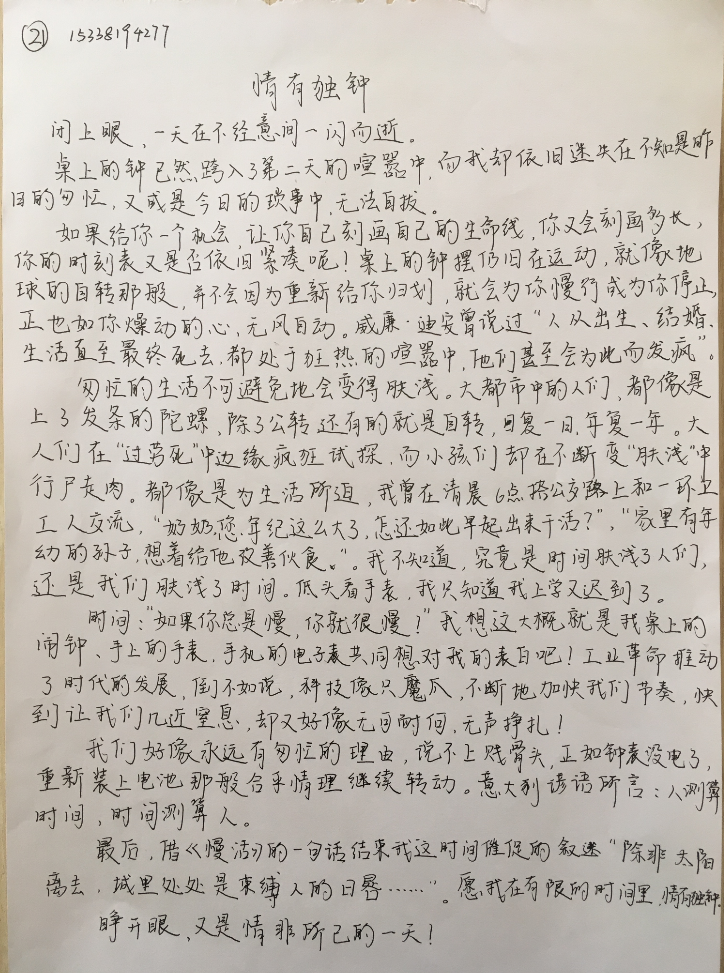 21 15338194277
情有独钟
闭上眼,一天在不经意间一闪而逝。
桌上的钟已然跨入了第二天的喧嚣中,而我却依旧迷失在不知是昨
日的匆忙,又或是今日的琐事中,无法自拔。
如果给你一个机会,让你自己刻画自己的生命线,你又会刻画多长,
你的时刻表又是否依旧紧凑呢!桌上的钟摆仍旧在运动,就像地
球的自转那般,并不会因为重新给你归划,就会为你慢行或为你停止,
正也如你燥动的心,无风自动。威廉·迪安曾说过“人从出生、结婚、
生活直至最终死去,都处于狂热的喧嚣中,他们甚至会为此而发疯”。
匆忙的生活不可避免地会变得肤浅。大都市中的人们,都像是
上了发条的陀螺,除了公转还有的就是自转,日复一日,年复一年。大
人们在“过劳死”中边缘疯狂试探,而小孩们却在不断变“肤浅”中
行尸走肉。都像是为生活所迫,我曾在清晨6点搭公交路上和一环卫
工人交流,“奶奶,您年纪这么大了,怎还如此早起出来干活?”,“家里有年
幼的孙子,想着给他改善伙食。”。我不知道,究竟是时间肤浅了人们,
还是我们肤浅了时间。低头看手表,我只知道我上学又迟到了。
时间:“如果你总是慢,你就很慢!”我想这大概就是我桌上的
闹钟、手上的手表,手机的电子表共同想对我的表白吧!工业革命推动
了时代的发展,倒不如说,科技像只魔爪,不断地加快我们节奏,快
到让我们几近窒息,却又好像无可耐何,无声挣扎!
我们好像永远有匆忙的理由,说不上贱骨头,正如钟表没电了,
重新装上电池那般合乎情理继续转动。意大利谚语所言:人测算
时间,时间测算人。
最后,借《慢活》的一句话结束我这时间催促的叙述“除非太阳
离去,城里处处是束缚人的日晷……”。愿我在有限的时间里,情有独钟.
睁开眼,又是情非所已的一天!